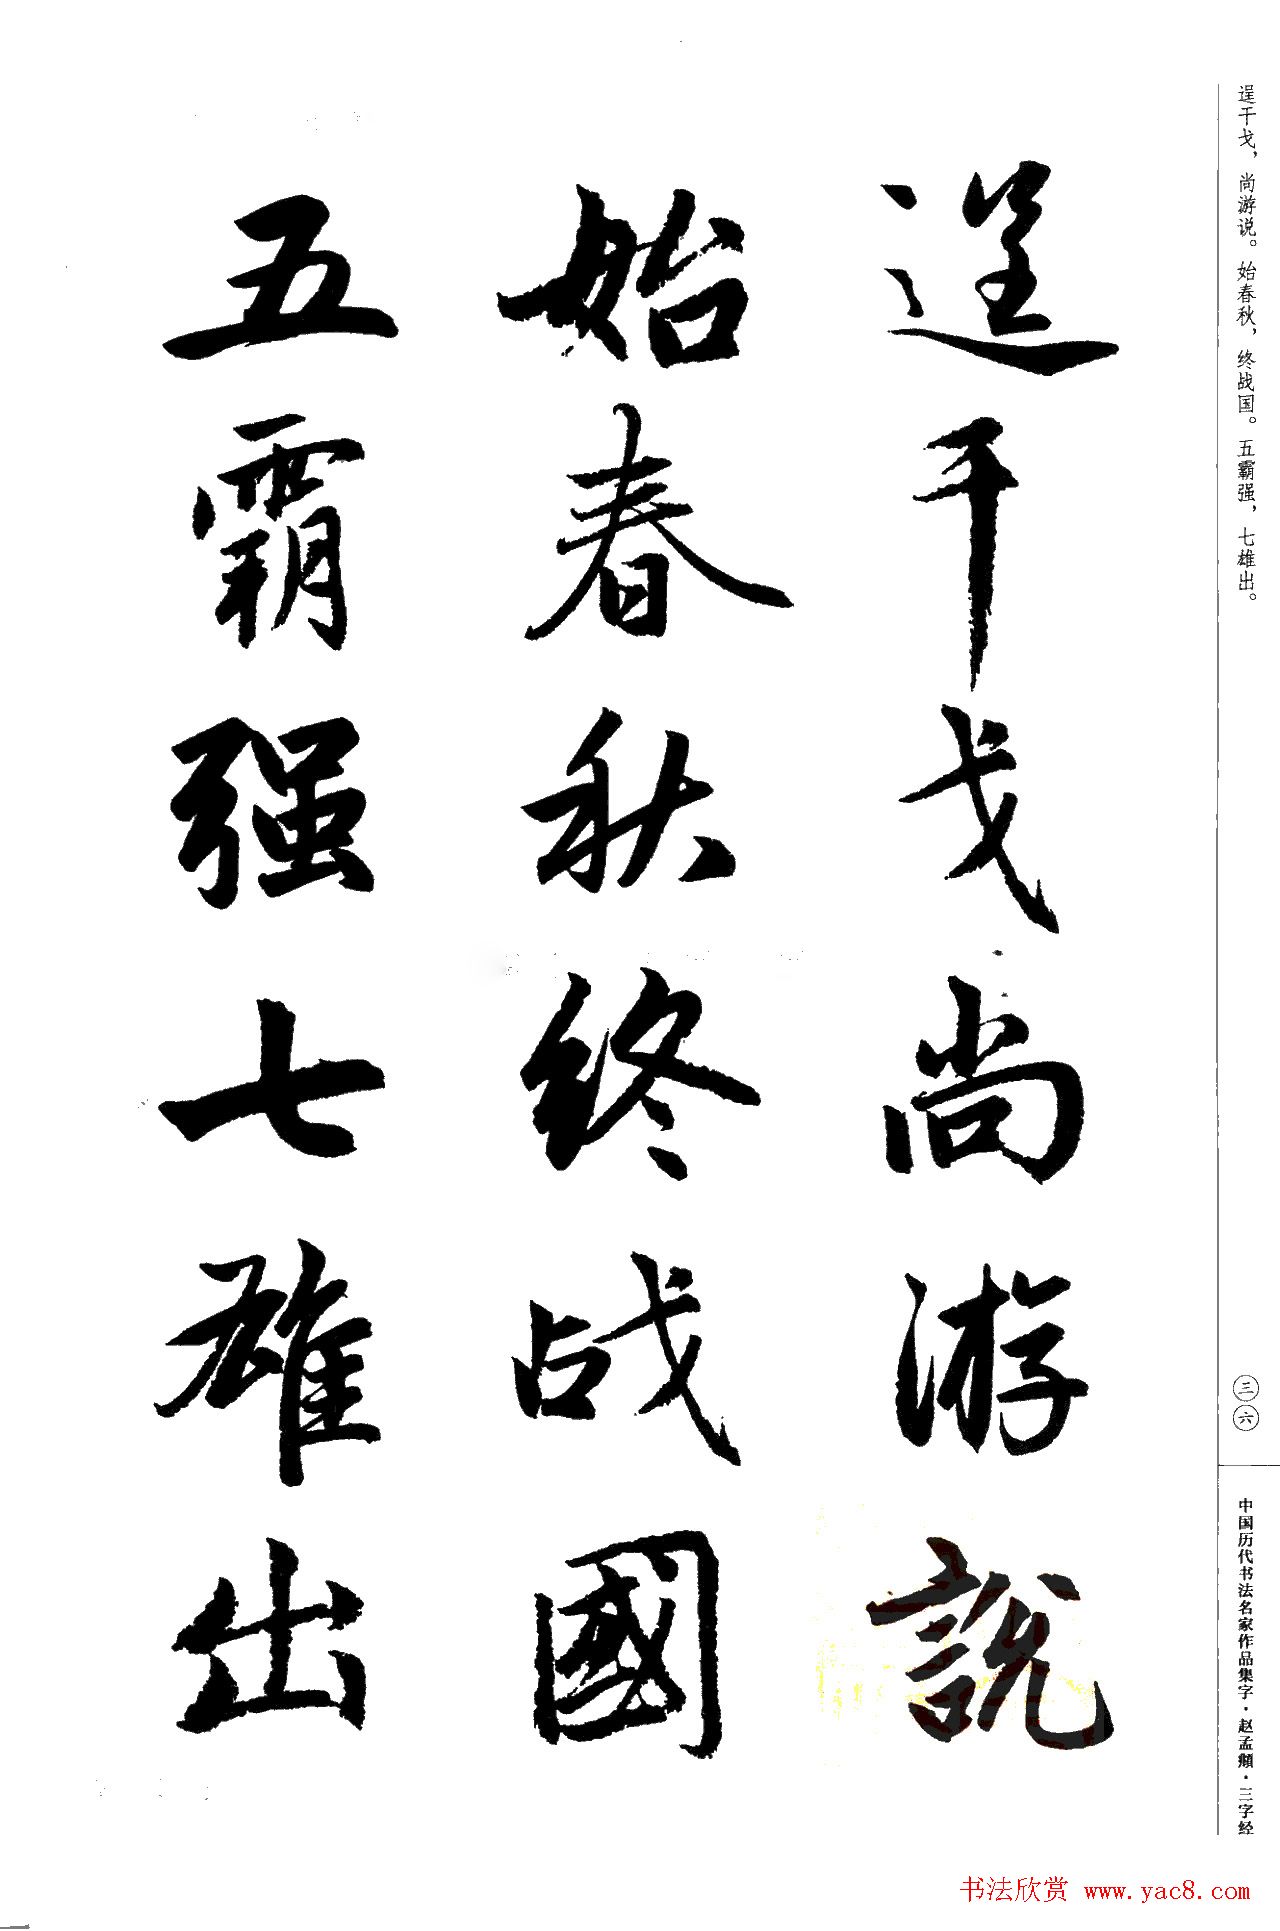 逞干戈，尚游说。始春秋，终战国。五霸强，七雄出。
逞干戈尚游説
始春秋终战國
五霸强七雄出
三六
中国历代书法名家作品集字·赵孟頫·三字经
书法欣赏 www.yac8.com